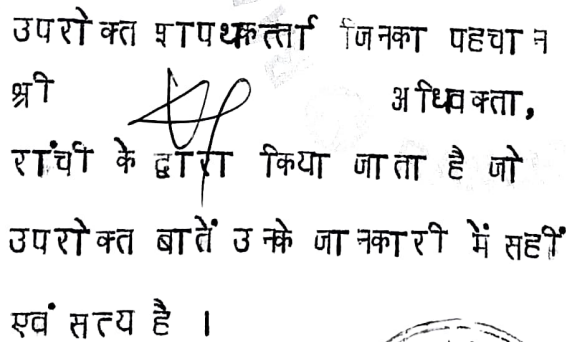 उपरोक्त शापथकर्त्ता जिनका पहचान
श्री अधिवक्ता,
रांची के द्वारा किया जाता है जो
उपरोक्त बातें उनके जानकारी में सहीं
एवं सत्य है ।